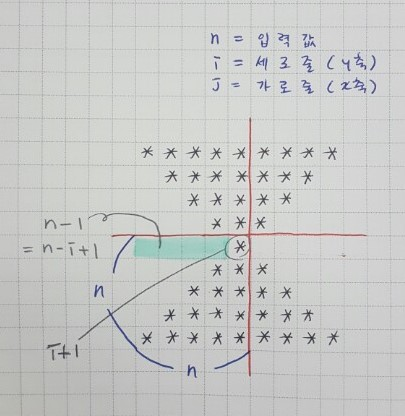 n = 입력값
i = 세로줄 (y축)
j = 가로줄 (x축)
* * * * * * * * *
* * * * * * *
* * * * *
* * *
n-1
= n-i+1
*
* * *
n
* * * * *
* * * * * * *
i+1
* * * * * * * * *
n